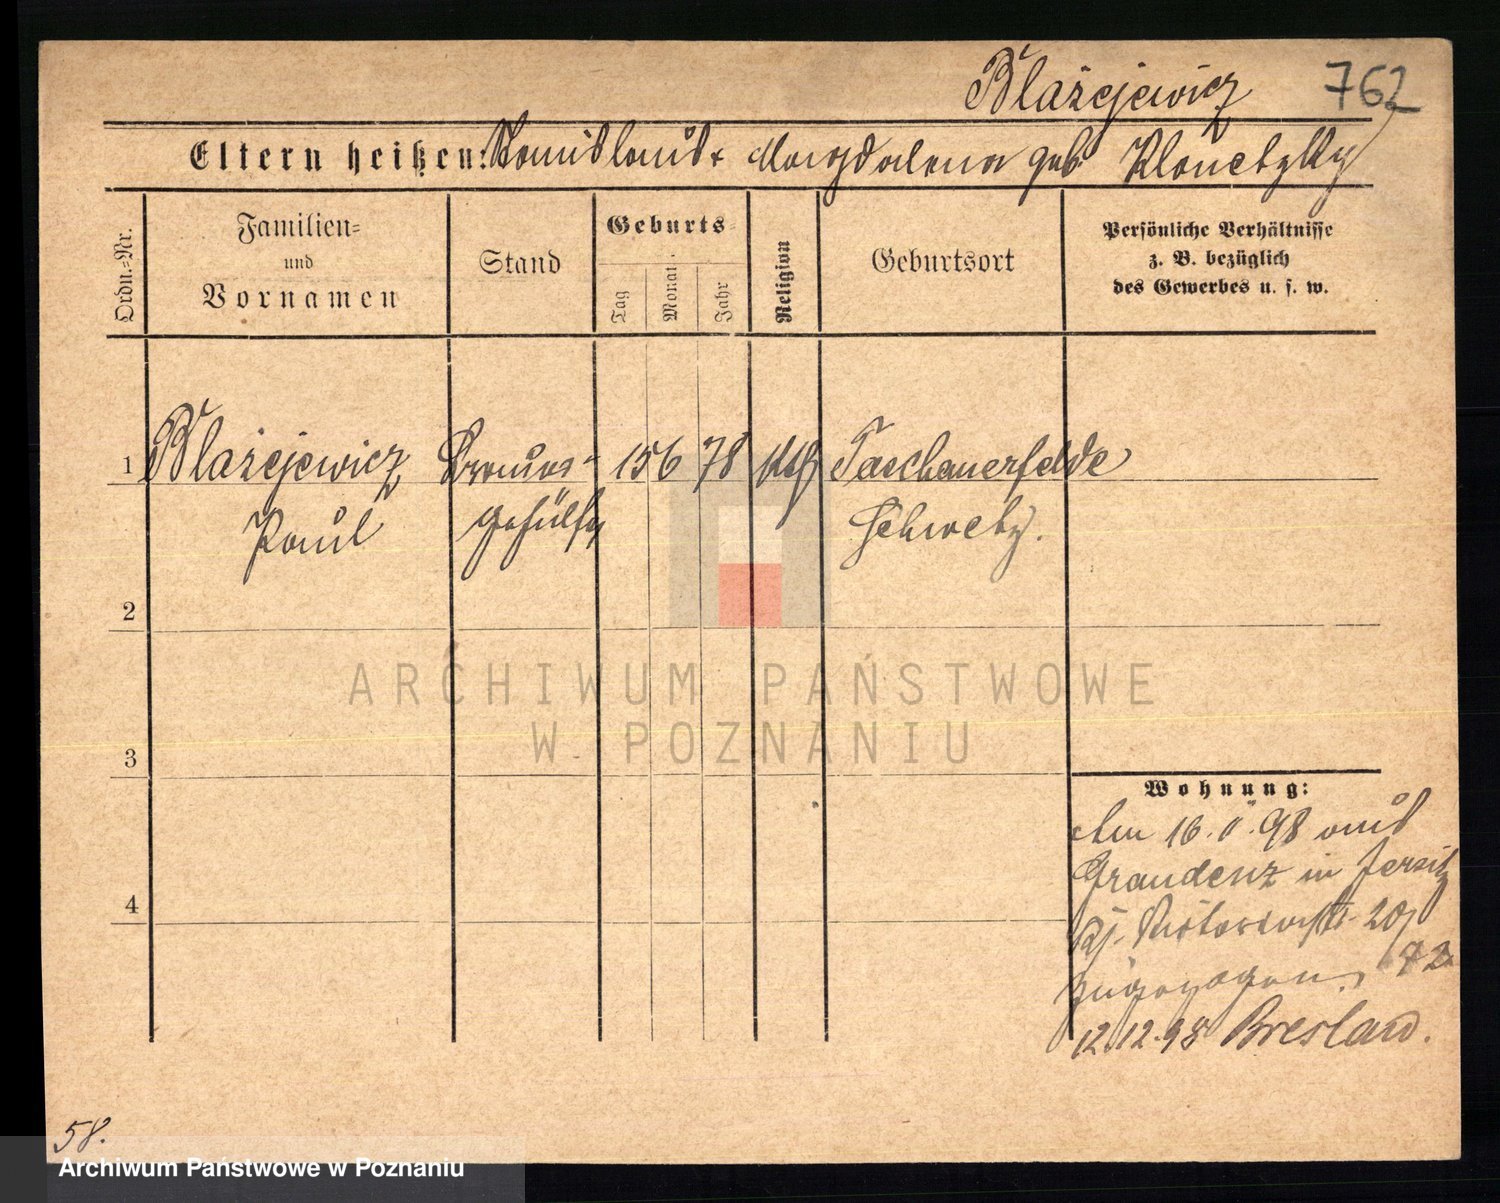 Blażejewicz 762
Eltern heißen: Stanislaus & Magdalena geb.
Ordn.=Nr.
Familien=
und
Vornamen
Stand
Geburts=
Tag
Monat
Jahr
Religion
Geburtsort
Persönliche Verhältnisse
z. B. bezüglich
des Gewerbes u. s. w.
1 Blażejewicz 15 6 78 kth Taschauerfelde
Paul gehülfe Schwetz.
2
ARCHIWUM PAŃSTWOWE
W POZNANIU
3
Wohnung:
Am 16. 98 aus
Graudenz in Jersitz
20
4
zugezogen. 72
12.12.98 Breslau.
58.
Archiwum Państwowe w Poznaniu